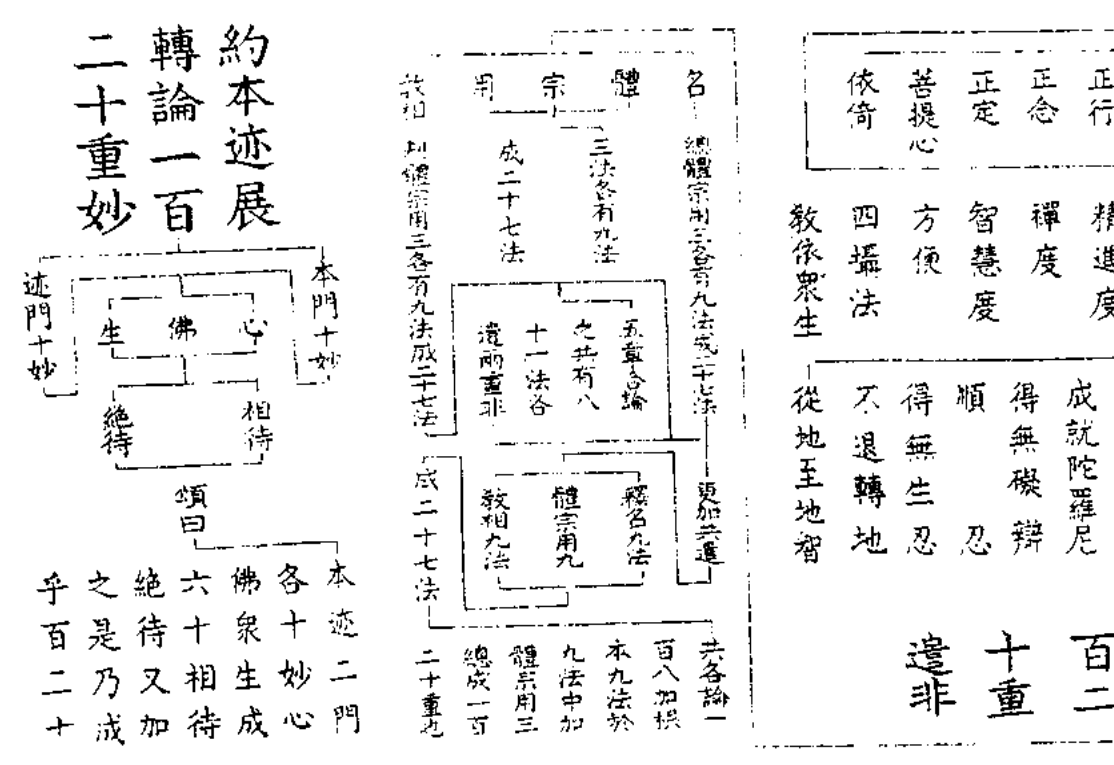 正行
正念
正定
菩提心
依倚
精進度
禪度
智慧度
方便
四攝法
教依衆生
成就陀羅尼
得無礙辯
順忍
得無生忍
不退轉地
從地至地智
百二
十重
遣非
名
體
宗
用
教相
總體宗用三各有九法成二十七法
三法各有九法
成二十七法
判體宗用三各有九法成二十七法
五章合論
之共有八
十一法各
遣兩重非
更加共遣
釋名九法
體宗用九
教相九法
成二十七法
共各論一
百八加根
本九法於
九法中加
體宗用三
總成一百
二十重也
約本迹展
轉論一百
二十重妙
本門十妙
心
佛
生
迹門十妙
相待
絶待
頌曰
本迹二門
各十妙心
佛衆生成
六十相待
絶待又加
之是乃成
乎百二十